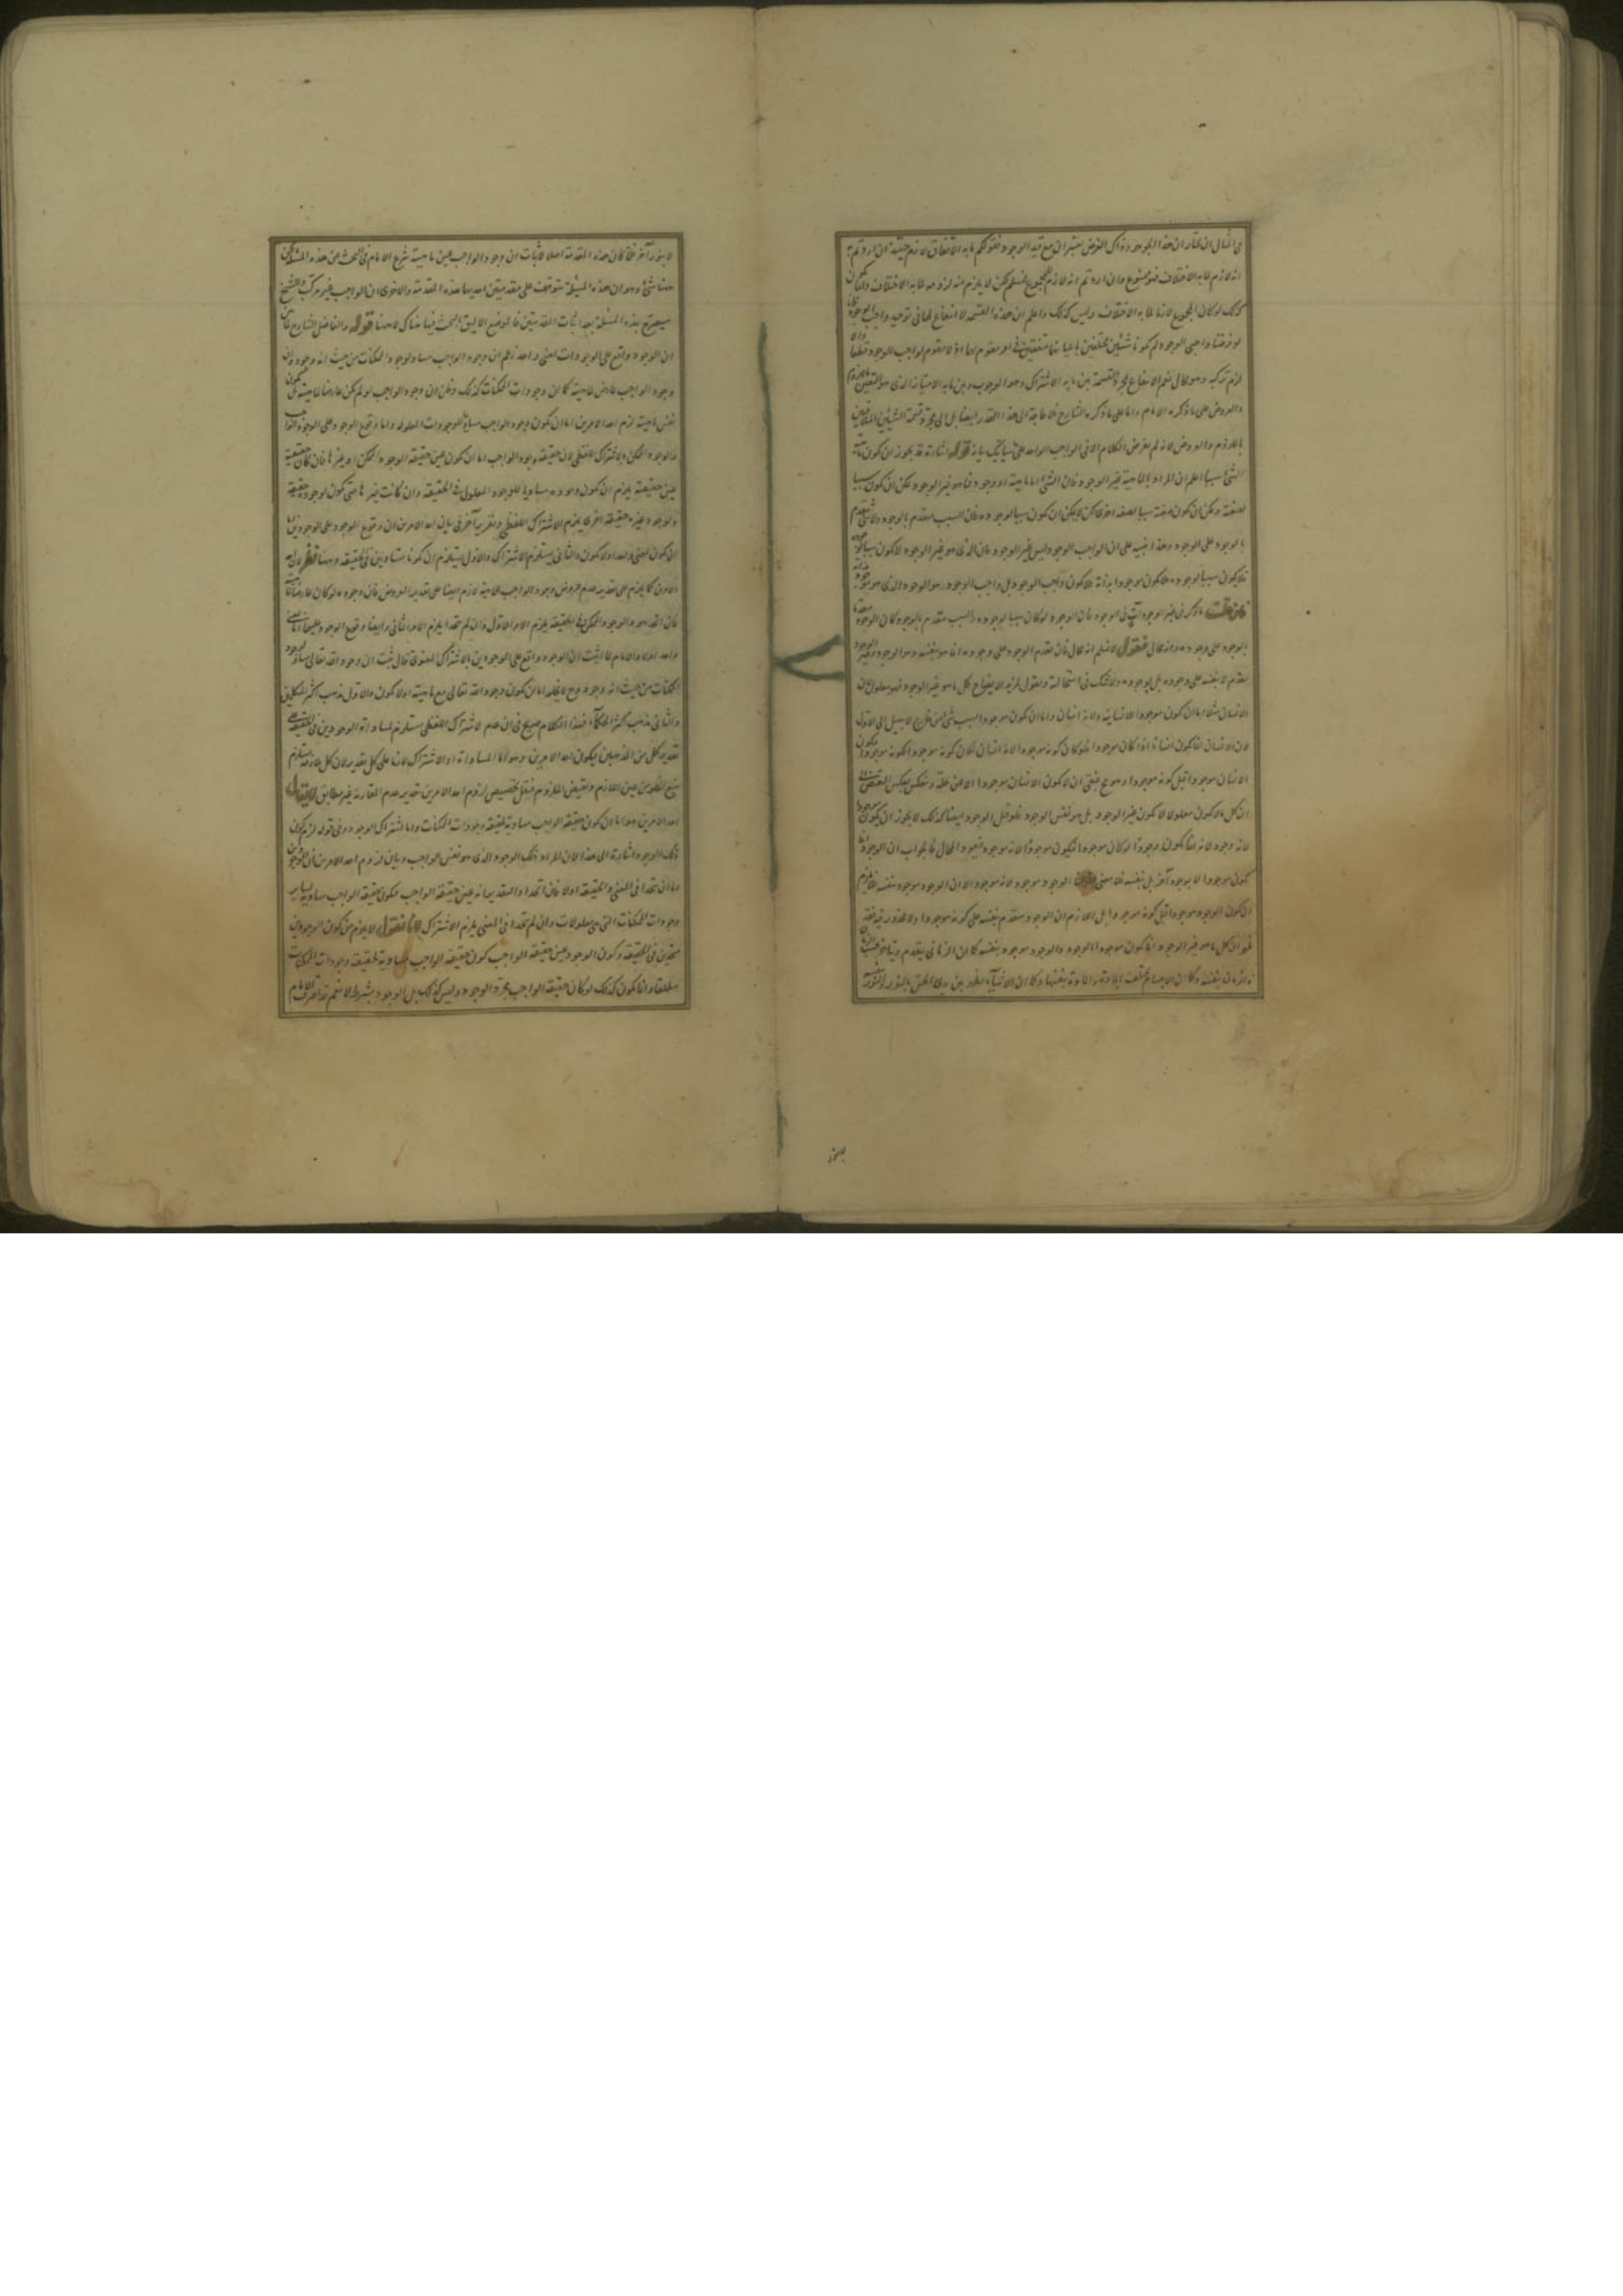 في المثال ان يختار ان هذا الموجود وذاك الفرض يعتبران مع قيد الوجود فقولكم ما به الاتفاق لازم حينئذ ان اردتم به
انه لازم لما به الاختلاف فهو ممنوع وان اردتم انه لازم للمجموع فمسلم لكن لا يلزم منه لزومه لما به الاختلاف وانما يكون
كذلك لو كان المجموع لازما لما به الاختلاف وليس كذلك واعلم ان هذه القسمة لا انتفاع لها في توحيد واجب الوجود
لو فرضنا واجبي الوجود لم يكونا شيئين مختلفين باعيانهما متفقين في امر مقوم لهما اذ لا مقوم لواجب الوجود
لزم تركبه وهو محال نعم الانتفاع بمجرد القسمة بين ما به الاشتراك وهو الوجوب وبين ما به الامتياز الذي هو التعين
والعروض على ما ذكره الامام واما على ما ذكره الشارح فلا حاجة الى هذا القدر ايضا بل الى مجرد قسمة الشيئين
باللزوم والعروض لانه لم يفرض الكلام الا في الواجب الواحد على ما سيأتيك بيانه قوله اشارة قد يجوز ان يكون ماهية
الشئ سببا اعلم ان المراد بالماهية غير الوجود فان الشئ اما ماهية او وجود فما هو غير الوجود يمكن ان يكون سببا
لصفة ويمكن ان يكون صفة سببا لصفة اخرى لكن لا يمكن ان يكون سببا لوجوده فان السبب متقدم بالوجود ولا شئ متقدم
بالوجود على الوجود وهذا تنبيه على ان الواجب الوجود ليس غير الوجود فان الذي هو غير الوجود لا يكون سببا لوجوده
فلا يكون سببا لوجوده فلا يكون موجودا بذاته فلا يكون واجب الوجود بل واجب الوجود هو الوجود الذي هو موجود
فان قلت ما ذكر في غير الوجود آت في الوجود فان الوجود لو كان سببا لوجوده والسبب متقدم بالوجود كان الوجود
بالوجود على وجوده وانه محال فنقول لا نسلم انه محال فان تقدم الوجود على وجوده انما هو بنفسه وهو الوجود وغير الوجود
يتقدم لا بنفسه على وجوده بل بوجوده ولا شك في استحالته ونقول لمزيد الايضاح كل ما هو غير الوجود فهو معلول لان
الانسان مثلا اما ان يكون موجودا للانسانية ولانه انسان واما ان يكون موجودا بسبب شئ من خارج لا سبيل الى الاول
لان الانسان انما يكون انسانا اذا كان موجودا فلو كان كونه موجودا لانه انسان لكان كونه موجودا لكونه موجودا فيكون
الانسان موجودا قبل كونه موجودا وهو محال فبقي ان لا يكون الانسان موجودا الا عن علة وينعكس بعكس النقيض
ان كل ما لا يكون معلولا لا يكون غير الوجود بل هو نفس الوجود فلو قيل الوجود ايضا كذلك لا يجوز ان يكون موجودا
لانه وجود لانه انما يكون وجودا لو كان موجودا فيكون موجودا لانه موجود فيعود المحال فالجواب ان الوجود انما
يكون موجودا لا بوجود آخر بل بنفسه فلا معنى لقولنا الوجود موجود لانه موجود الا ان الوجود موجود بنفسه فلا يلزم
ان يكون الوجود موجودا قبل كونه موجودا بل اللازم ان الوجود متقدم بنفسه على كونه موجودا ولا محذور فيه فقد
ظهر ان كل ما هو غير الوجود انما يكون موجودا بالوجود والوجود موجود بنفسه كما ان الزماني يتقدم ويتاخر بحسب الزمان
والزمان بنفسه وكما ان الاجسام تختلف بالمادة والمادة بنفسها وكما ان الاشياء تظهر بين يدي الحس بالنور والنور بنفسه
لا بنور
لا بنور آخر فلما كان هذه المقدمة اصلا لاثبات ان وجود الواجب عين ماهيته شرع الامام في البحث عن هذه المسئلة لكن
هنا شئ وهو ان هذه المسئلة تتوقف على مقدمتين احديهما هذه المقدمة والاخرى ان الواجب غير مركب والشيخ
سيصرح بهذه المسئلة بعد اثبات المقدمتين فالموضع الاليق بالبحث فيها هناك لا ههنا قوله والفاضل الشارح
ان الوجود واقع على الموجودات بمعنى واحد زعم ان وجود الواجب مساو لوجود الممكنات من حيث انه وجود وان
وجود الواجب عارض لماهيته كما ان وجودات الممكنات كذلك وظن ان وجود الواجب لو لم يكن عارضا لماهيته بل يكون
نفس ماهيته لزم احد الامرين اما ان يكون وجود الواجب مساويا للوجودات المعلولة واما وقوع الوجود على الوجود الواجب
والوجود الممكن بالاشتراك اللفظي لان حقيقة وجود الواجب اما ان يكون عين حقيقة الوجود الممكن او غيرها فان كان حقيقته
عين حقيقته يلزم ان يكون وجوده مساويا للوجود المعلول في الحقيقة وان كانت غيرها حتى يكون لوجوده حقيقة
ولوجود غيره حقيقة اخرى يلزم الاشتراك اللفظي وتقرير آخر في بيان احد الامرين ان وقوع الوجود على الوجودين اما
ان يكون بمعنى واحد او لا يكون والثاني يستلزم الاشتراك والاول يستلزم ان يكونا متساويين في الحقيقة وههنا نظر لان احد
الامرين كما يلزم على تقدير عدم عروض وجود الواجب لماهيته لازم ايضا على تقدير العروض فان وجوده لو كان عارضا لماهيته
فان اتحد هو والوجود الممكن في الحقيقة يلزم الامر الاول وان لم يتحدا يلزم الامر الثاني وايضا وقوع الوجود عليهما اما بمعنى
واحد او لا والامام لما اثبت ان الوجود واقع على الوجودين بالاشتراك المعنوي قال ثبت ان وجود الله تعالى مساو لوجود
الممكنات من حيث انه وجود وح لا يخلو اما ان يكون وجود الله تعالى مع ماهيته او لا يكون والاول مذهب اكثر المتكلمين
والثاني مذهب اكثر الحكماء فهذا الكلام صريح في ان عدم الاشتراك اللفظي مستلزم لمساواة الوجودين في الحقيقة على
تقدير كل من المذهبين فيكون احد الامرين وهو اما المساواة او الاشتراك لازما على كل تقدير لان كل ملازمة يستلزم
منع الخلو من عين اللازم ونقيض الملزوم فنقل تخصيص لزوم احد الامرين بتقدير عدم المقارنة غير مطابق لا يقال
احد الامرين هو اما ان يكون حقيقة الواجب مساوية لحقيقة وجودات الممكنات واما اشتراك الوجود وفي قوله لزم كون
ذلك الوجود اشارة الى هذا لان المراد ذلك الوجود الذي هو نفس الواجب وبيان لزوم احد الامرين ان الوجودين
اما ان يتحدا في المعنى والحقيقة او لا فان اتحدا والتقدير انه عين حقيقة الواجب فيكون حقيقة الواجب مساوية لساير
وجودات الممكنات التي هي معلولات وان لم يتحدا في المعنى يلزم الاشتراك لانا نقول لا يلزم من كون الوجودين
متحدين في الحقيقة وكون الوجود عين حقيقة الواجب كون حقيقة الواجب مساوية لحقيقة وجودات الممكنات
مطلقا وانما يكون كذلك لو كان حقيقة الواجب مجرد الوجود وليس كذلك بل الوجود بشرط لا نعم قد اعترف الامام